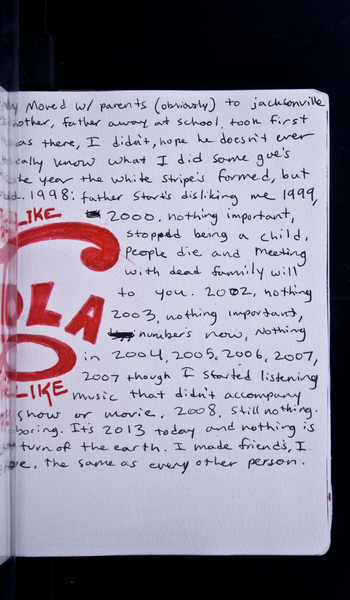 moved w/ parents (obviously) to jacksonville
father away at school, took first
there, I didn't, hope he doesn't ever
know what I did some gue's
year the white stripe's formed, but
1998: father start's disliking me 1999,
LIKE
2000. nothing important,
stopped being a child.
People die and meeting
with dead family will
to you. 2002, nothing
OLA
2003. nothing important,
number's now, Nothing
in 2004, 2005, 2006, 2007,
2007 though I started listening
LIKE
music that didn't accompany
show or movie. 2008, still nothing.
boring. It's 2013 today and nothing is
turn of the earth. I made friend's, I
the same as every other person.